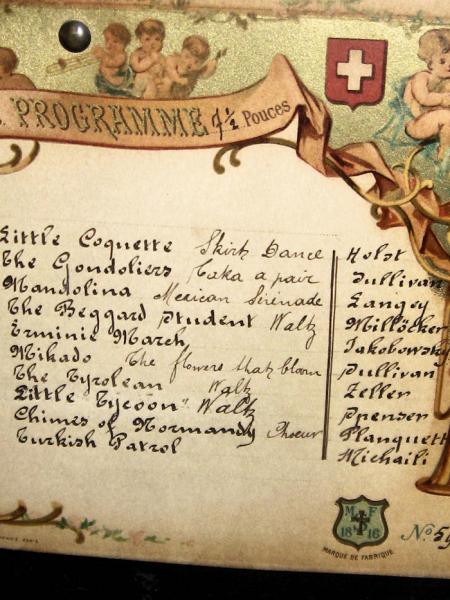 PROGRAMME 4½ Pouces
Little Coquette Skirt Dance Holst
The Gondoliers Taka a pair Sullivan
Mandolina Mexican Serenade Langey
The Beggard Student Waltz Millöcker
Erminie March Jakobowsky
Mikado The flowers that bloom Sullivan
The Tyrolean Waltz Zeller
Little Tycoon" Waltz Spenser
Chimes of Normandy Choeur Planquett
Turkish Patrol Michaili
M F
18 16
MARQUE DE FABRIQUE
No 59